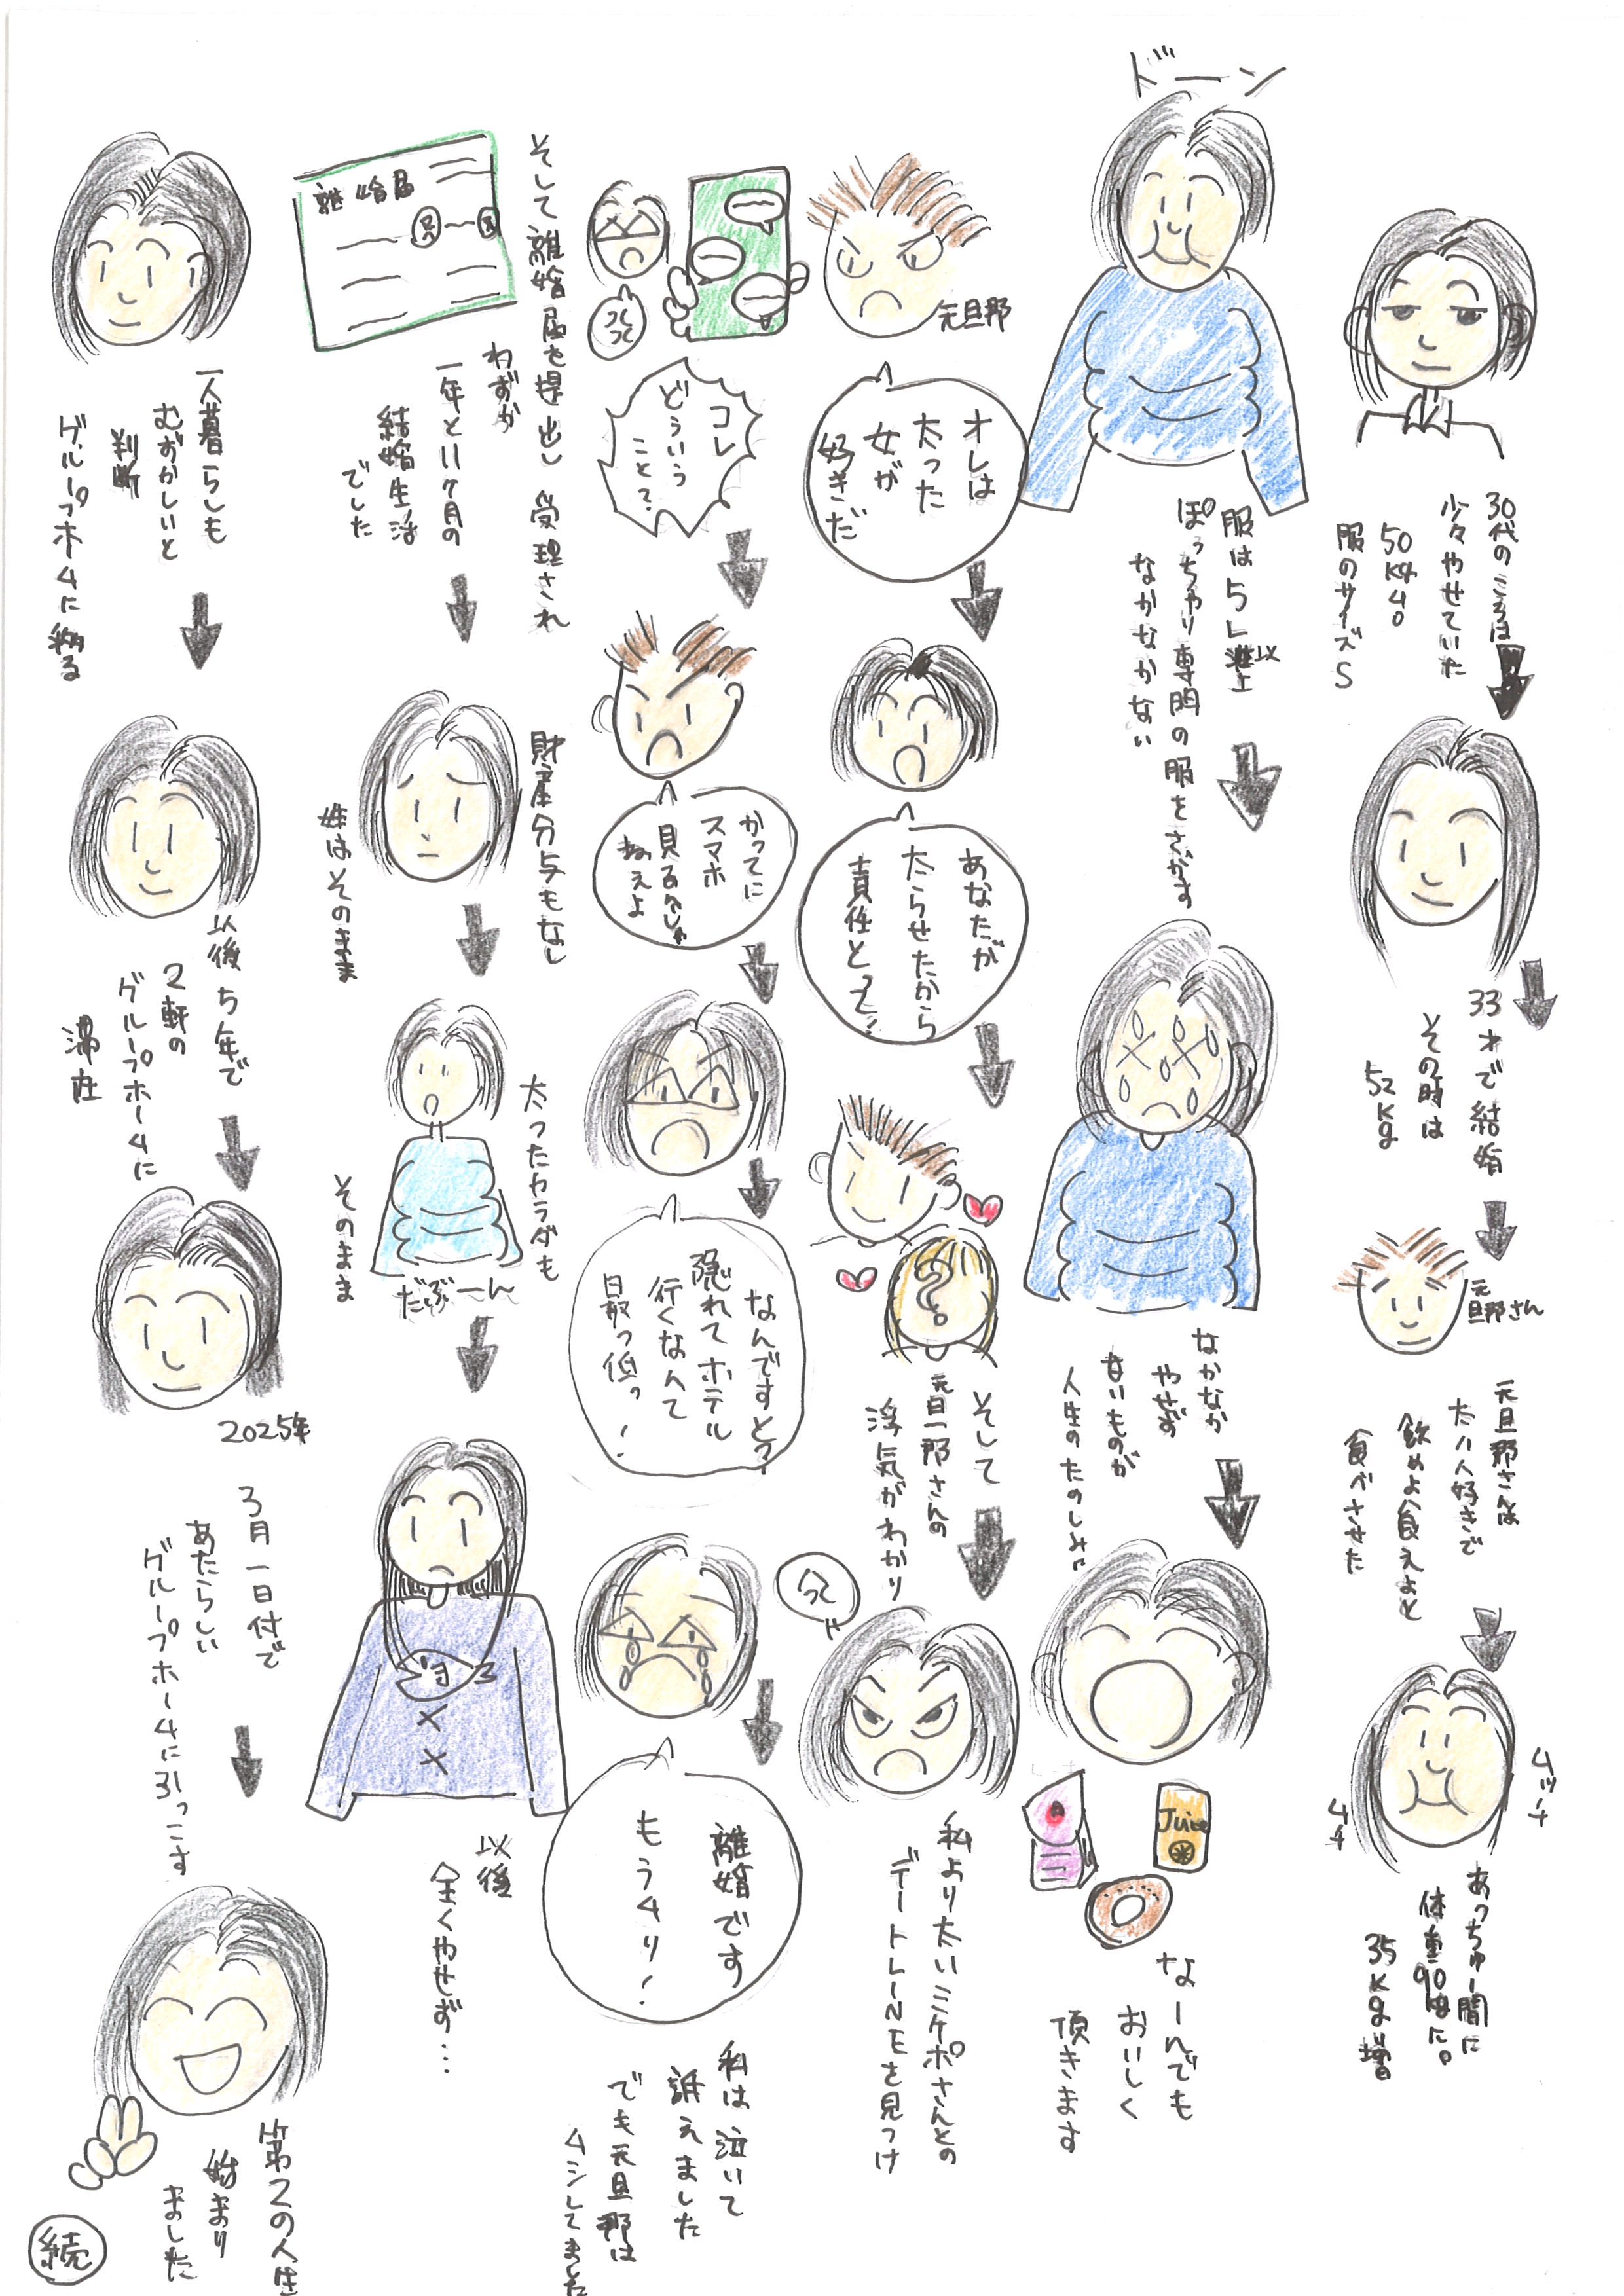 30代のころは
少々やせていた
50kg 40
服のサイズS
33才で結婚
その時は
52kg
元旦那さん
元旦那さんは
太い人好きで
飲めよ食えよと
食べさせた
ムッチ
ムチ
あっちゅー間に
体重90kgに。
35kg増
ドーン
服は5L以上
ぽっちゃり専門の服をさがす
なかなかない
なかなか
やせず
甘いものが
人生のたのしみ
Juice
なーんでも
おいしく
頂きます
元旦那
オレは
太った
女が
好きだ
あなたが
太らせたから
責任とって?
?
そして
元旦那さんの
浮気がわかり
私より太いミケポさんとの
デートLINEを見つけ
コレ
どういう
こと?
かってに
スマホ
見るんじゃ
ねぇよ
なんですと?
隠れてホテル
行くなんて
最っ低っ!
離婚です
もうムリ!
私は泣いて
訴えました
でも元旦那は
ムシしてました
そして離婚届を提出し 受理され
離婚届
わずか
一年と11ヶ月の
結婚生活
でした
財産分与もなし
姓はそのまま
太ったカラダも
そのまま
だぶーん
以後
全くやせず…
一人暮らしも
むずかしいと
判断
グループホームに移る
以後5年で
2軒の
グループホームに
滞在
2025年
3月一日付で
あたらしい
グループホームに引っこす
第2の人生
始まり
ました
続